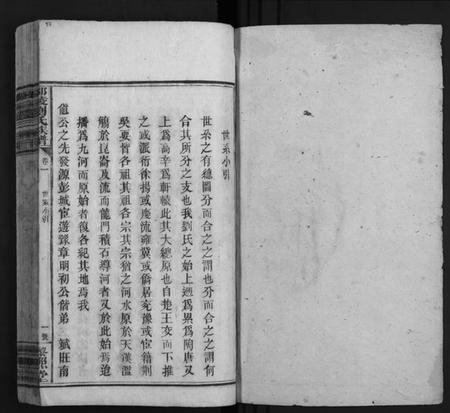 世系小引
世系之有總圖分而合之之謂也分而合之之謂何
合其所分之支也我劉氏之始上遡異爲陶唐又
上爲高辛爲軒轅此其大總原也自楚王交而下推
之或派衍徐揚或慶流雍冀或僑居兗豫或宦籍荆
吳要皆各祖其祖各宗其宗猶之河水原於天漢濫
觴於崑崙及流而龍門積石導河者又於此始焉迨
播爲九河而原始者復各紀其地焉我
公之先發源彭城宦遊豫章明初公偕弟
斌旺南
劉氏族譜
卷一
世系小引
一